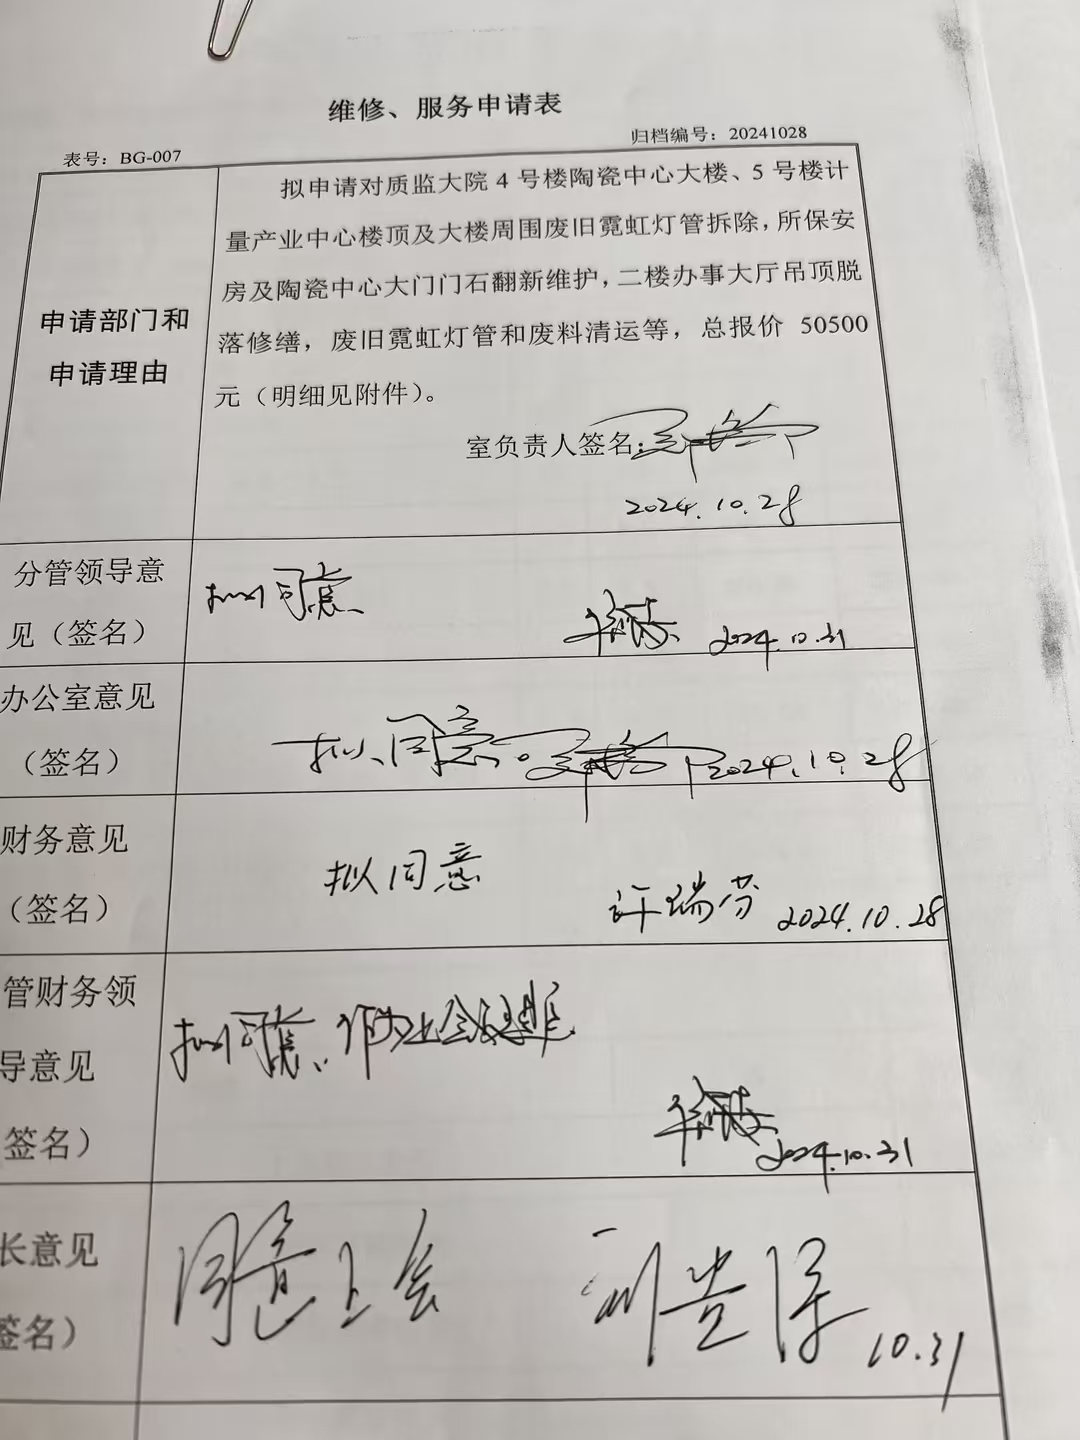 维修、服务申请表
表号：BG-007
归档编号：20241028
申请部门和
申请理由
拟申请对质监大院4号楼陶瓷中心大楼、5号楼计
量产业中心楼顶及大楼周围废旧霓虹灯管拆除，所保安
房及陶瓷中心大门门石翻新维护，二楼办事大厅吊顶脱
落修缮，废旧霓虹灯管和废料清运等，总报价 50500
元（明细见附件）。
室负责人签名：
2024.10.28
分管领导意
见（签名）
拟同意
2024.10.31
办公室意见
（签名）
拟同意。
2024.10.28
财务意见
（签名）
拟同意
许瑞芬 2024.10.28
管财务领
导意见
签名）
拟同意、
2024.10.31
长意见
签名）
同意上会
10.31